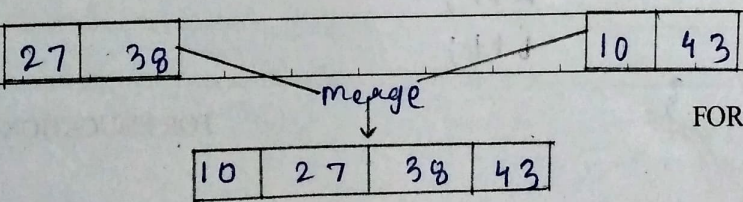 27 38 10 43
merge
FOR
10 27 38 43